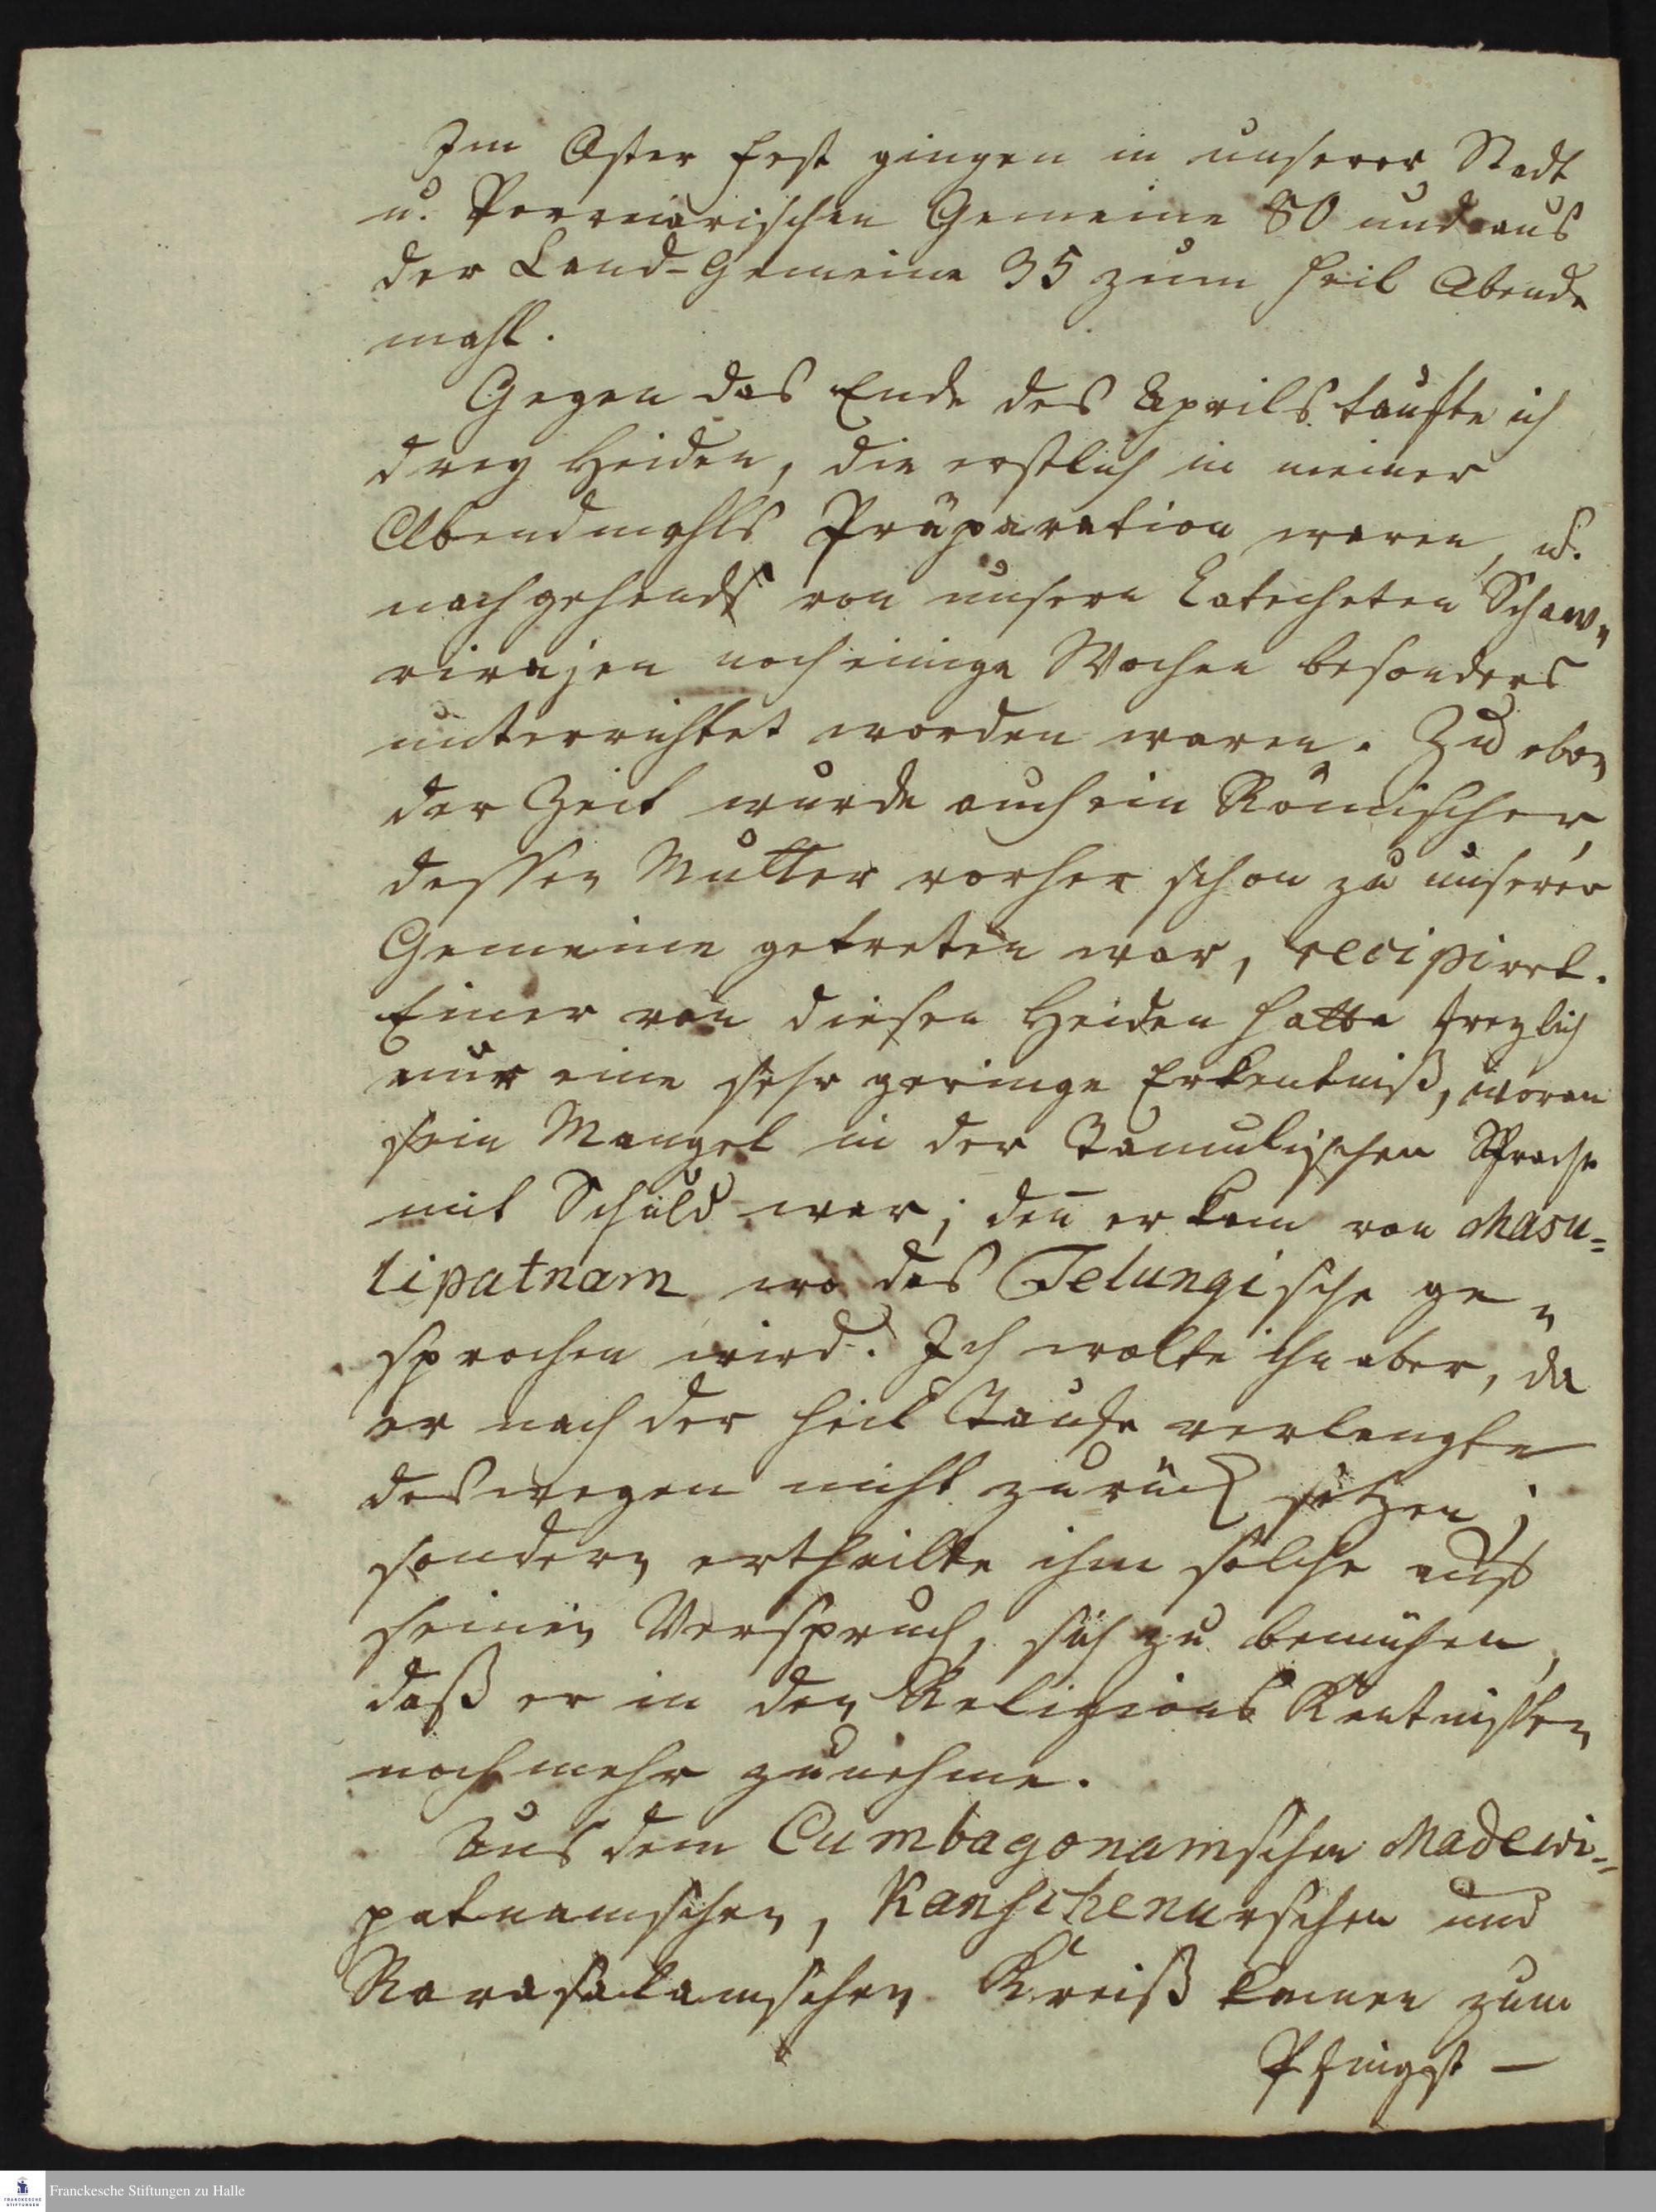 Im Oster fest gingen in unserer Stadt
u. Porreiarischen Gemeine 80 und aus
der Land-Gemeine 35 zum heil Abend
mahl.
Gegen das Ende des Aprils taufte ich
drey Heiden, die erstlich in meiner
Abendmahls Präparation waren, u.
nachgehends von unsern Catecheten Schaw„
rirajen noch einige Wochen besonders
unterrichtet worden waren. Zu eben
der Zeit wurde auch ein Römischer,
dessen Mutter vorher schon zu unserer
Gemeine getreten war, recipiret.
Einer von diesen Heiden hatte freylich
nur eine sehr geringe Erkentniß, woran
sein Mangel in der Tamulischen Sprache
mit Schuld war; den̄ er kam von Masu=
lipatnam wo das Telungische ge„
sprochen wird. Ich wolte ihn aber, da
er nach der heil Taufe verlangte
deswegen nicht zurück setzen;
sondern ertheilte ihm solche auf
seinen Verspruch, sich zu bemühen,
daß er in den Religions Kentnissen
noch mehr zunehme.
Aus dem Cumbagonamschen Madewi=
patnamschen, Kanschenurschen und
Rarasalamschen Kreiß kamen zum
Pfingst —
Franckesche Stiftungen zu Halle